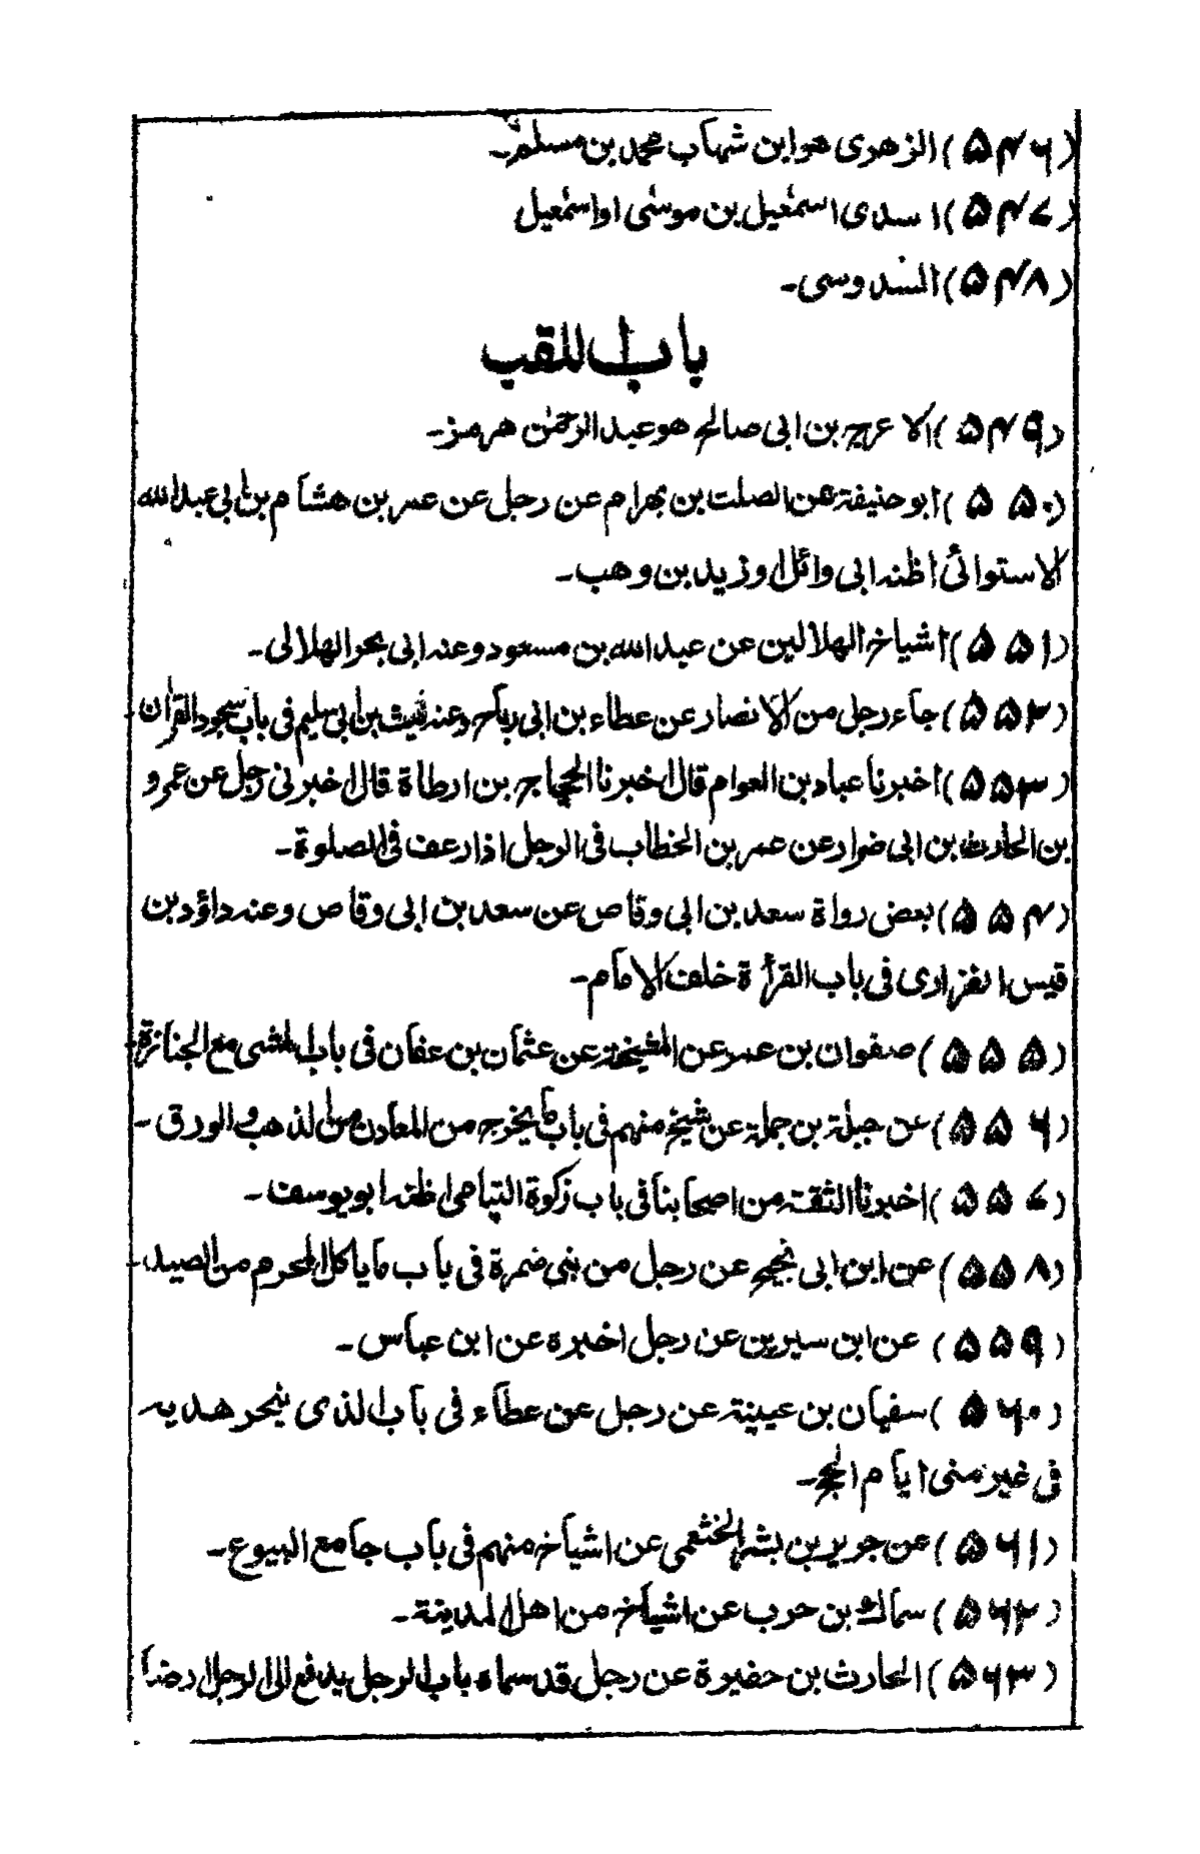 (۵۴۶) الزهری هو ابن شهاب محمد بن مسلم۔
(۵۴۷) ا سدی اسمٰعیل بن موسٰی او اسمٰعیل
(۵۴۸) السدوسی۔
باب اللقب
(۵۴۹) الاعرج بن ابی صالح هو عبد الرحمٰن هرمز۔
(۵۵۰) ابو حنیفة عن الصلت بن بهرام عن رجل عن عمر بن هشام بن ابی عبد الله
الاستوائی اظنه ابی وائل او زید بن وهب۔
(۵۵۱) اشیاخ الهلالین عن عبد الله بن مسعود وعنه ابی بحر الهلالی۔
(۵۵۲) جاء رجل من الانصار عن عطاء بن ابی رباح وعنه لیث بن ابی سلیم فی باب سجود القرآن
(۵۵۳) اخبرنا عباد بن العوام قال اخبرنا الحجاج بن ارطاة قال اخبرنی رجل عن عمرو
بن الحارث بن ابی ضرار عن عمر بن الخطاب فی الرجل اذا رعف فی الصلوة۔
(۵۵۴) بعض رواة سعد بن ابی وقاص عن سعد بن ابی وقاص وعنه داؤد بن
قیس الفزاری فی باب القرأة خلف الامام۔
(۵۵۵) صفوان بن عمر عن المشیخة عن عثمان بن عفان فی باب المشی مع الجنازة۔
(۵۵۶) عن جبلة بن جملة عن شیخ منهم فی باب ما یخرج من المعادن من الذهب والورق۔
(۵۵۷) اخبرنا الثقة من اصحابنا فی باب زکوة الیتامی اظنه ابو یوسف۔
(۵۵۸) عن ابن ابی نجیح عن رجل من بنی ضمرة فی باب ما یاکل المحرم من الصید۔
(۵۵۹) عن ابن سیرین عن رجل اخبره عن ابن عباس۔
(۵۶۰) سفیان بن عیینة عن رجل عن عطاء فی باب الذی ینحر هدیه
فی غیر منی ایام الحج۔
(۵۶۱) عن جریر بن بشر الخثعمی عن اشیاخ منهم فی باب جامع البیوع۔
(۵۶۲) سماك بن حرب عن اشیاخ من اهل المدینة۔
(۵۶۳) الحارث بن حفیرة عن رجل قد سماه باب الرجل یدفع الی الرجل ارضا